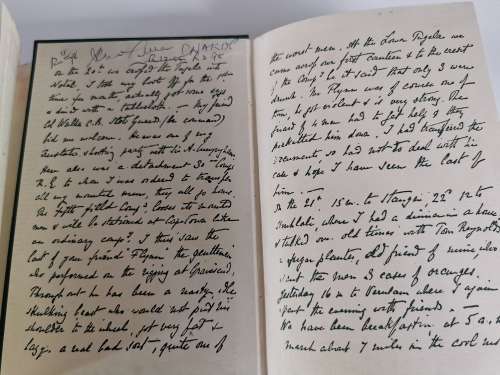 On the 20th we crossed the Tugela into
Natal, I took my boots off for the 1st
time for a month, actually got some eggs
& dined with a tablecloth. – My friend
Col Walter C.B. State Guards (he commands)
bid me welcome. He was one of my
shooting party with Sir A.
Here also was a detachment
R.E. to whom I was ordered to transfer
all my mounted men, they all go home.
The Fifth Field Compy loses its mounted
men & will be stationed at Capetown like
an ordinary compy. I thus saw the
last of your friend Flynn the gentleman
who performed on the rigging at Gravesend,
Throughout he has been a nasty
skulking beast who would not put his
shoulder to the wheel, got very fat &
lazy. a real bad sort, quite one of
the worst men. At the Lower Tugela we
came across our first canteen & to the credit
of the Compy be it said that only 3 were
drunk. Mr Flynn was of course one of
them, he got violent & is very strong. The
guard of 4 men had to get help & they
picketted him down. I had transferred the
documents, so had not to deal with his
case & hope I have seen the last of
him.
On the 21st 15 m. to Stanger, 22nd 12 to
Umhlali, where I had a dinner in a house
& talked over old times with Tom Reynolds
a sugar planter, old friend of mine who
sent the men 3 cases of oranges.
Yesterday 16 m to Verulam where I again
spent the evening with friends. –
We have been breakfasting at 5 a.m.
march about 7 miles in the cool